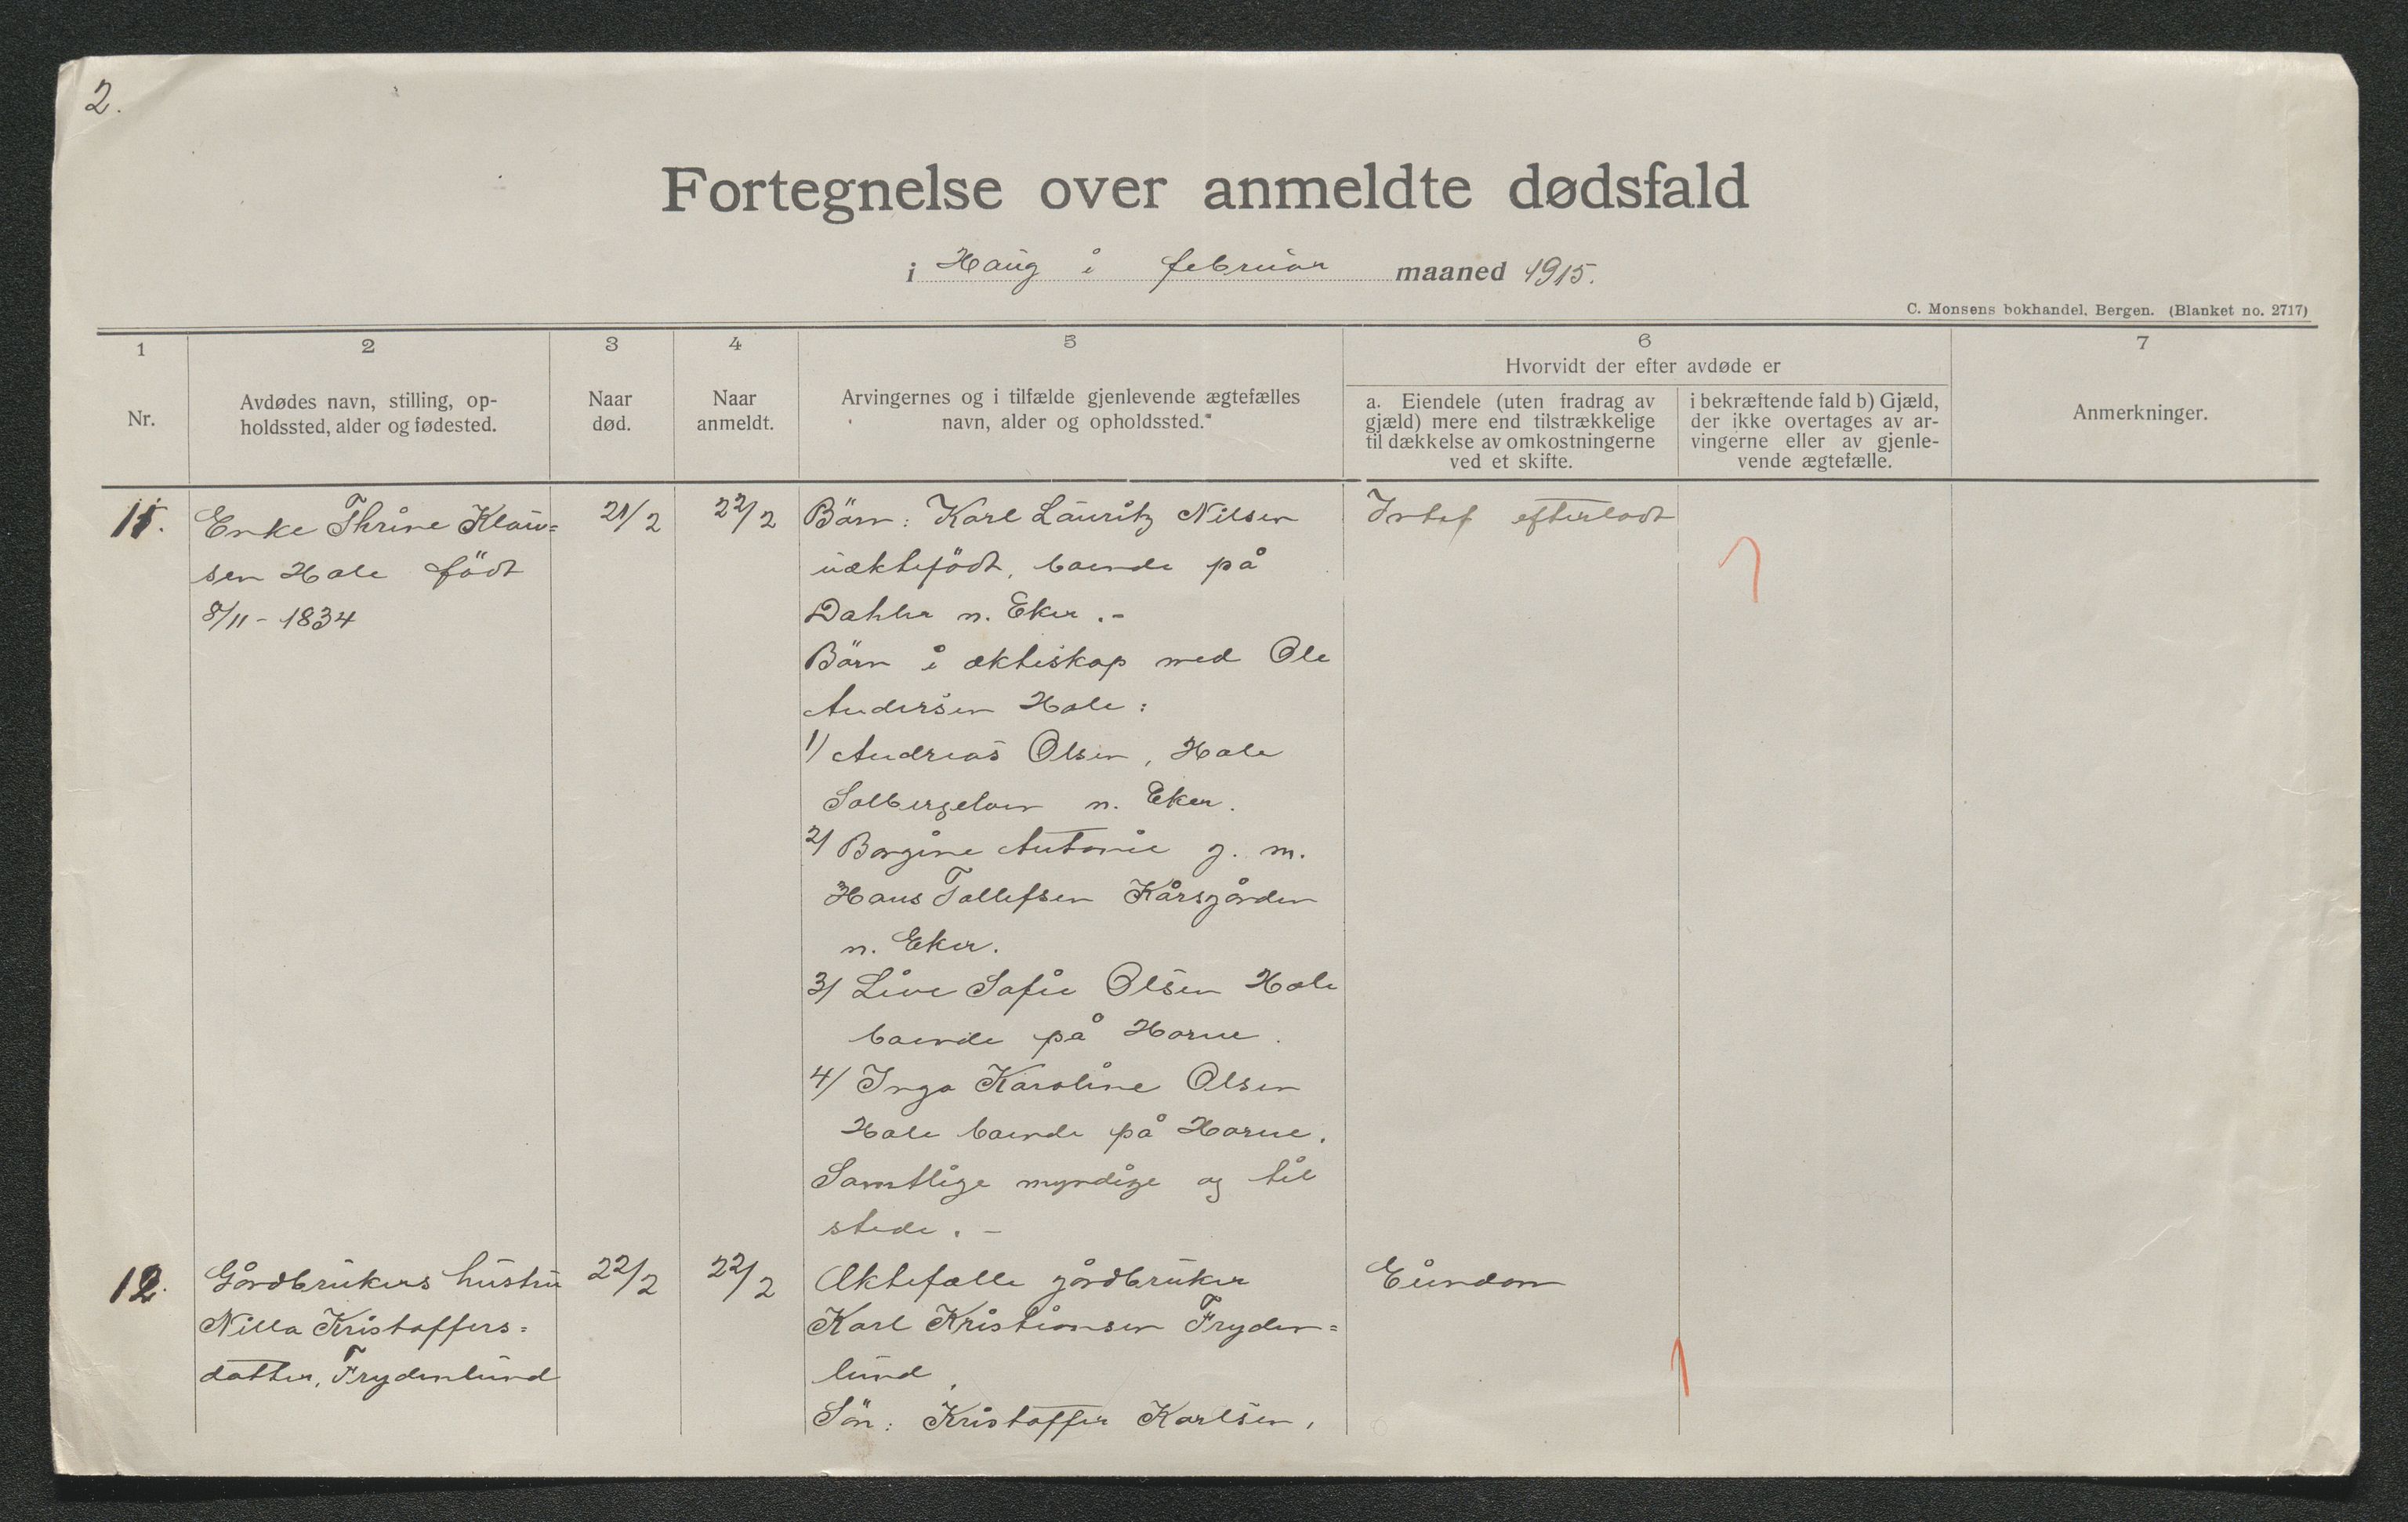 2.
Fortegnelse over anmeldte dødsfald
i Haug i februar maaned 1915.
C. Monsens bokhandel, Bergen. (Blanket no. 2717)
1
2
3
4
5
6
7
Nr.
Avdødes navn, stilling, op-
holdssted, alder og fødested.
Naar
død.
Naar
anmeldt.
Arvingernes og i tilfælde gjenlevende ægtefælles
navn, alder og opholdssted.*
Hvorvidt der efter avdøde er
a. Eiendele (uten fradrag av
gjæld) mere end tilstrækkelige
til dækkelse av omkostningerne
ved et skifte.
i bekræftende fald b) Gjæld,
der ikke overtages av ar-
vingerne eller av gjenle-
vende ægtefælle.
Anmerkninger.
11.
Enke Thrine Klau=
sen Hole födt
8/11 - 1834
21/2
22/2
Börn: Karl Lauritz Nilsen
uæktefödt, boende på
Dahler n. Eker.-
Börn i æktiskap med Ole
Andersen Hole:
1/ Andreas Olsen, Hole
Solbergelven n. Eker.
2/ Borgine Antonie g. m.
Hans Tollefsen Kårsgården
n. Eker.
3/ Live Sofie Olsen Hole
boende på Horne.
4/ Inga Karoline Olsen
Hole boende på Horne.
Samtlige myndige og til
stede. -
Intet efterladt
12.
Gårdbrukers hustru
Nilla Kristoffers=
datter, Frydenlund
22/2
22/2
Æktefælle gårdbruker
Karl Kristiansen Fryden=
lund,
Sön: Kristoffer Karlsen,
Eiendom